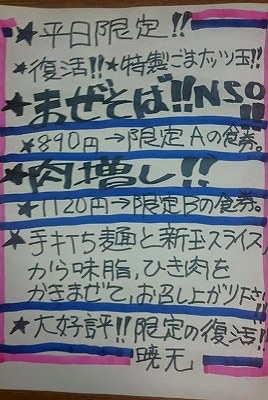 ★平日限定!!
★復活!!★特製ごまナッツ玉!!
★まぜそば!!NSO!!
★890円→限定Aの食券。
★肉増し!!
★1120円→限定Bの食券。
★手打ち麺と新玉スライス,
から味脂,ひき肉を
かきまぜて,お召し上がりくださ!!
★大好評!!限定の復活!!
暁天